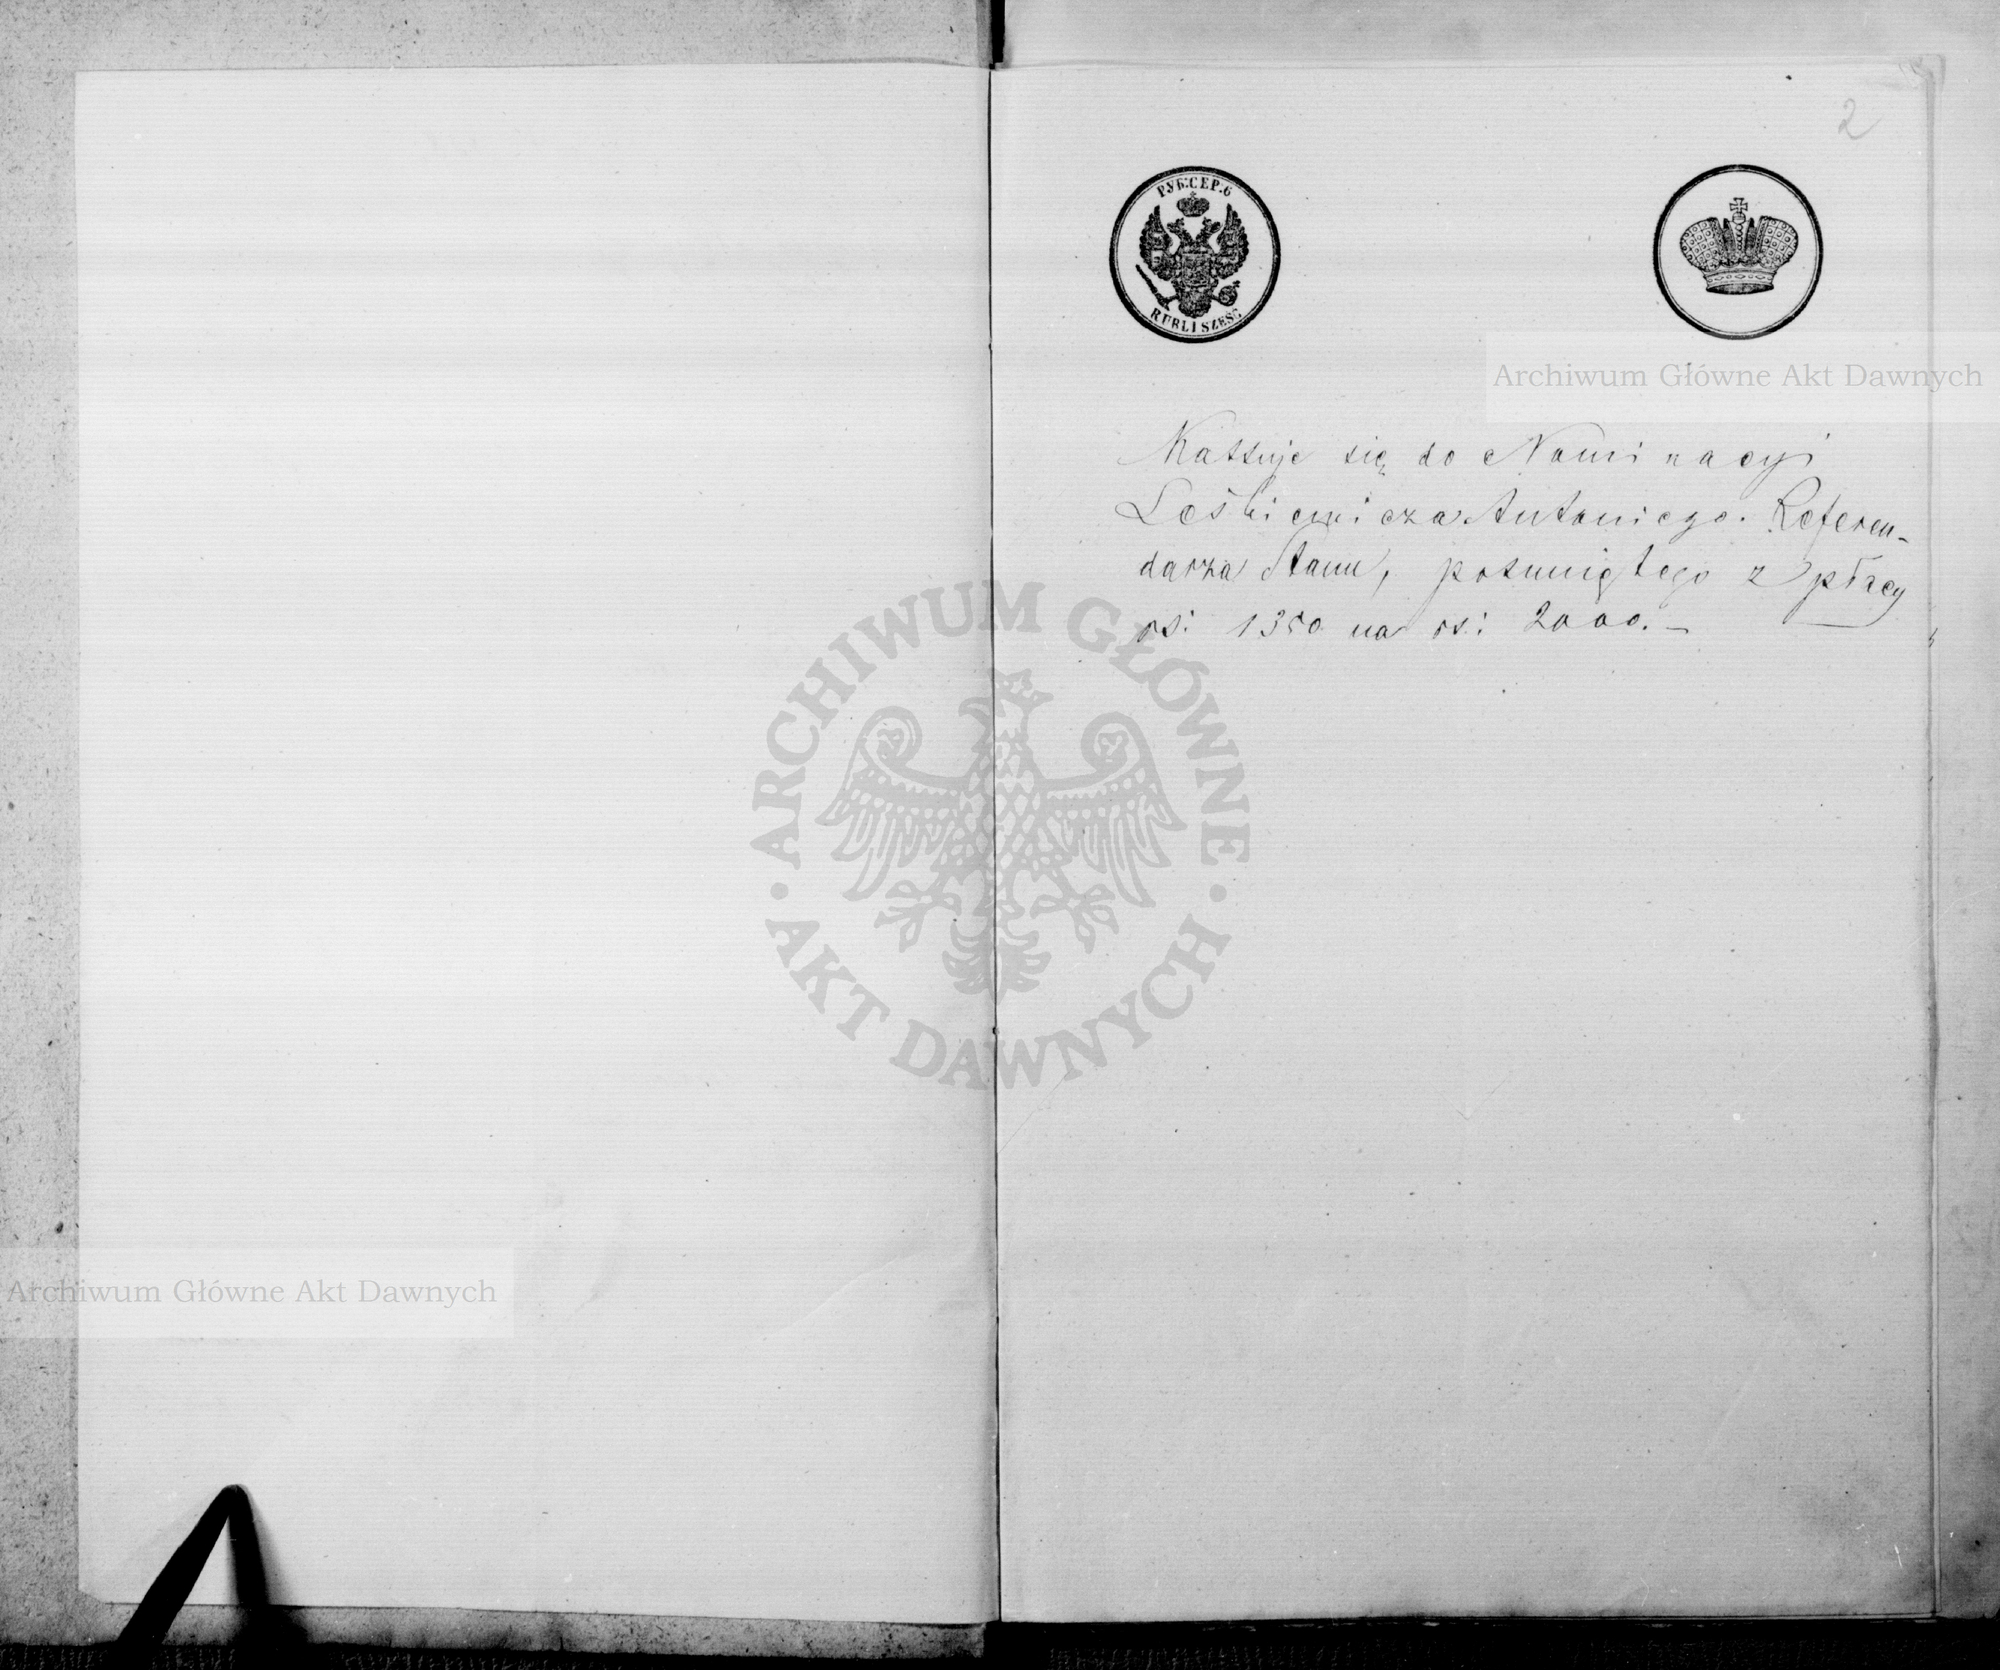 2
РУБ:СЕР.6
RUBLI SZEŚĆ
Archiwum Główne Akt Dawnych
Kassuje się do Nominacyi
Leśkiewicza Antoniego. Referen-
darza Stanu, posuniętego z płacy
rs: 1350 na rs: 2000.—
ARCHIWUM GŁÓWNE
AKT DAWNYCH
Archiwum Główne Akt Dawnych